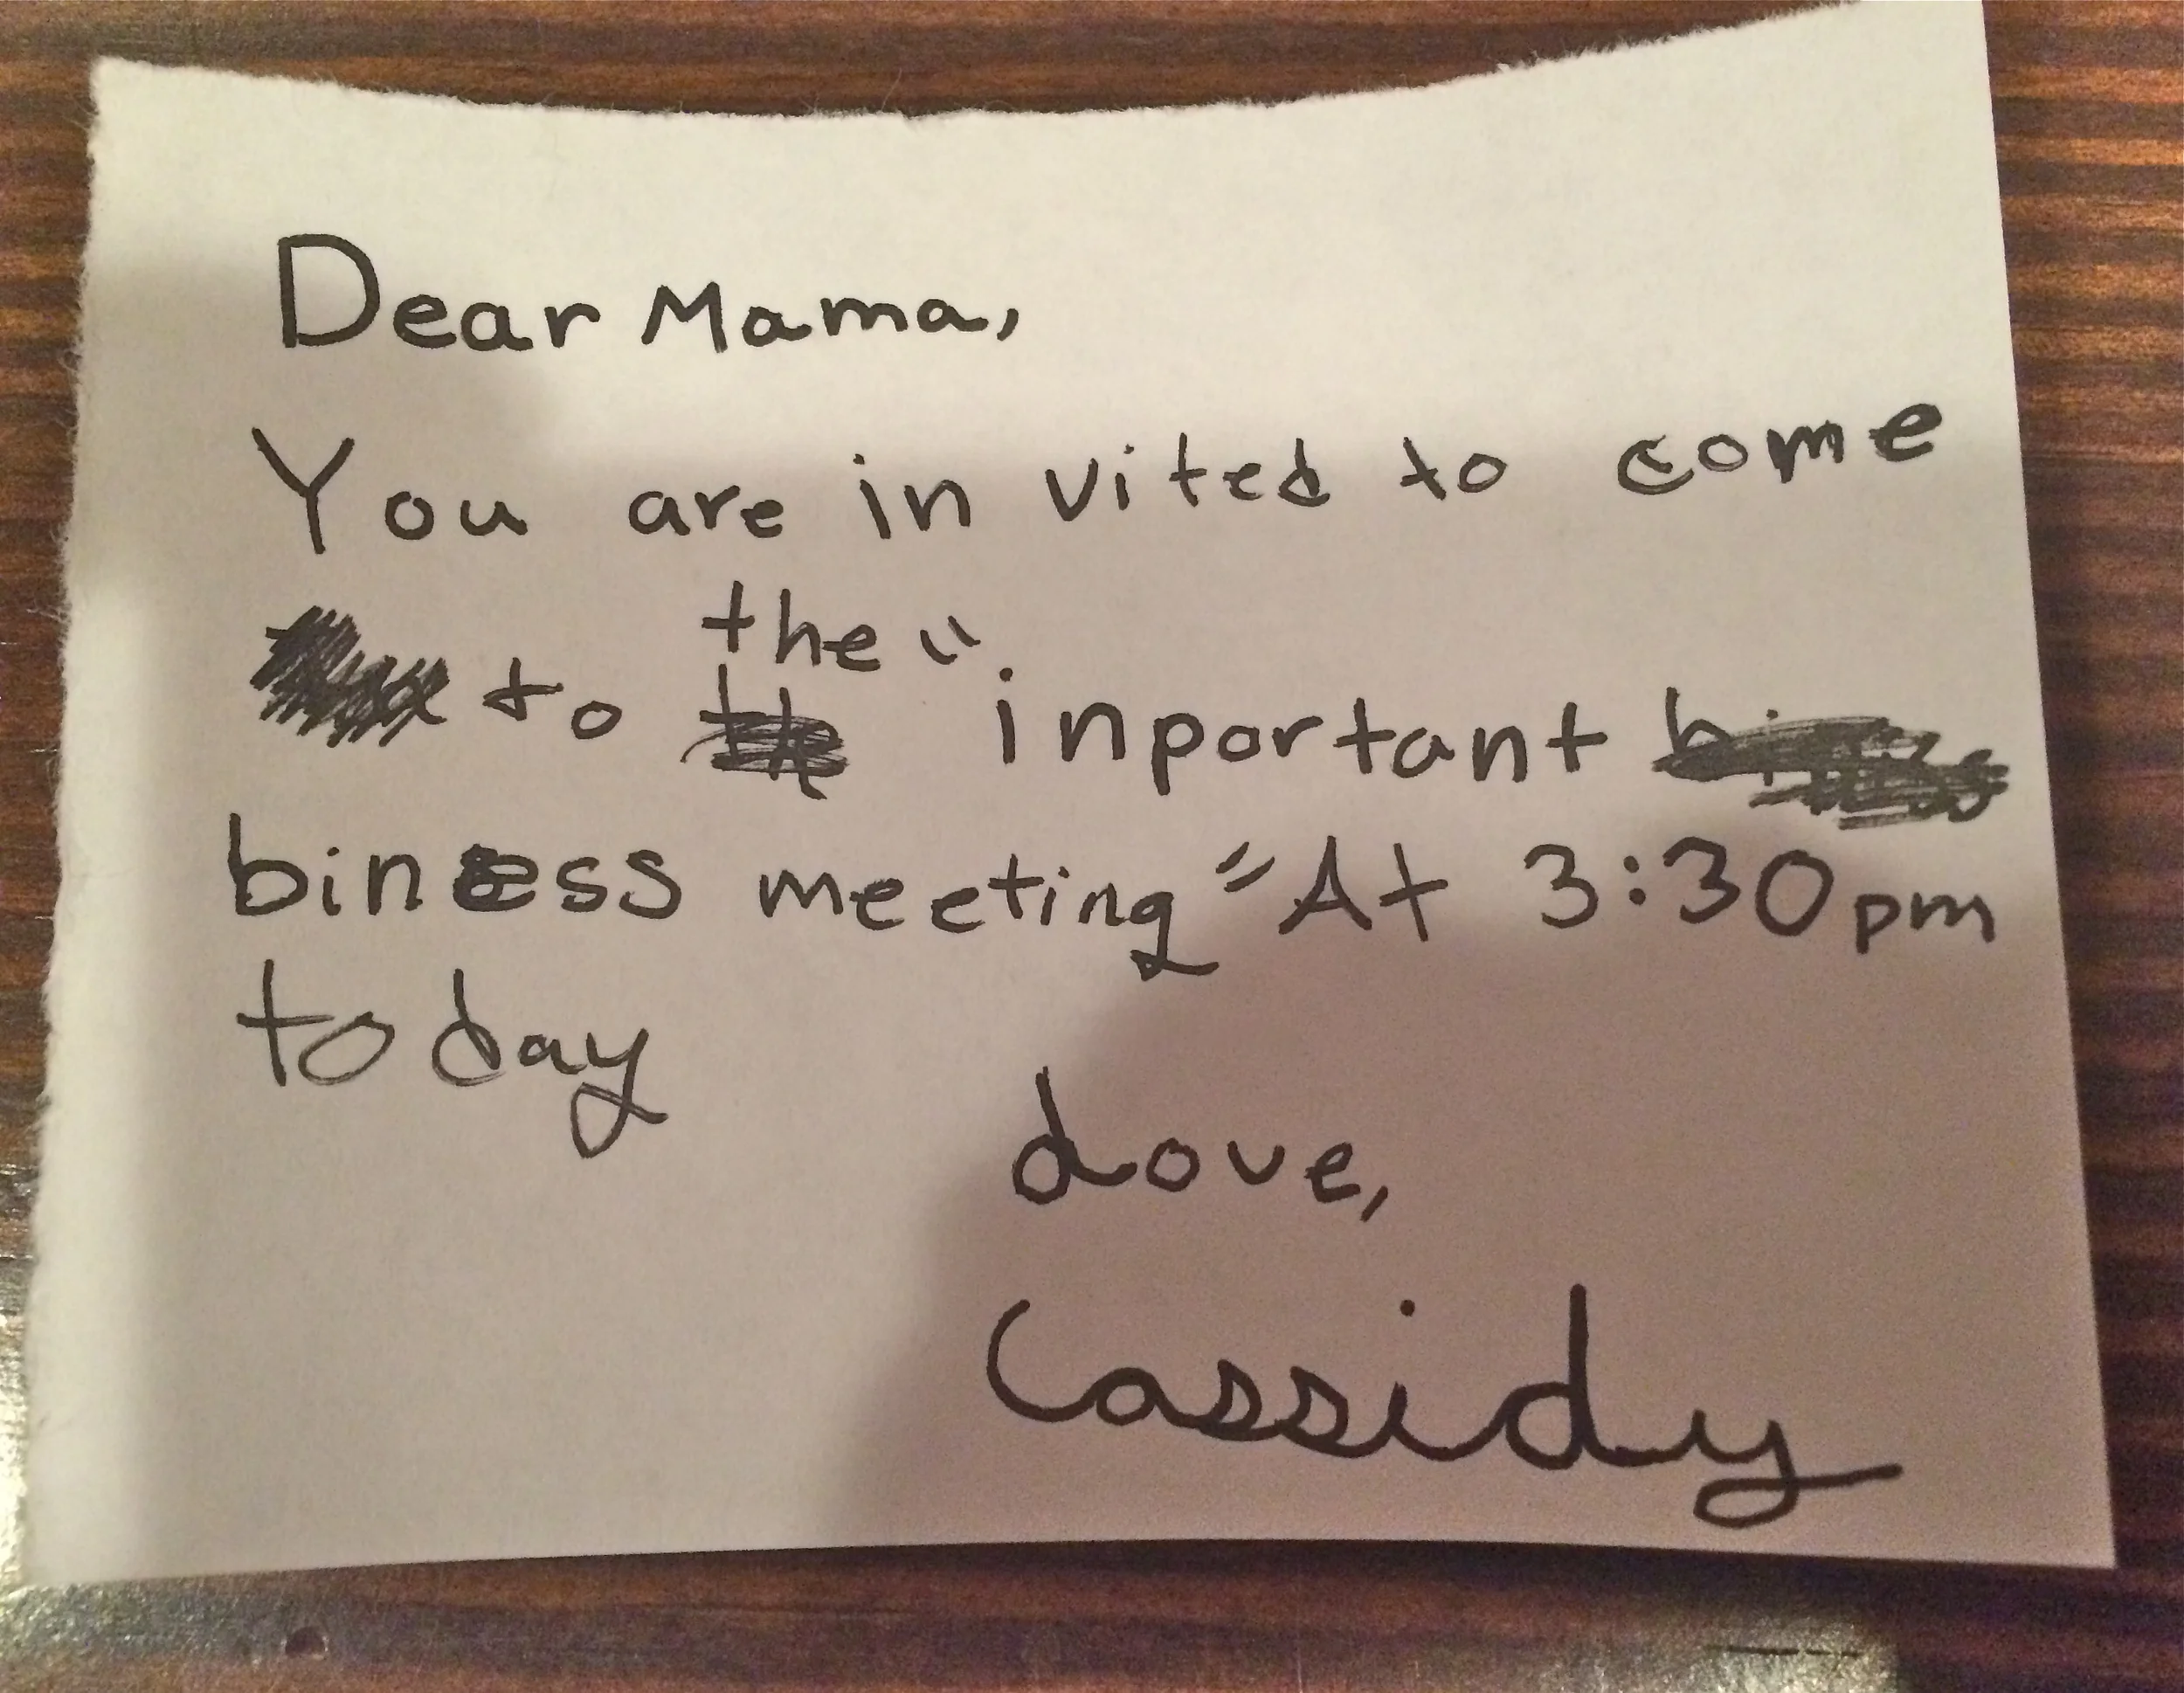 Dear Mama,
You are in vited to come
to the " inportant
biness meeting" At 3:30pm
today
Love,
Cassidy